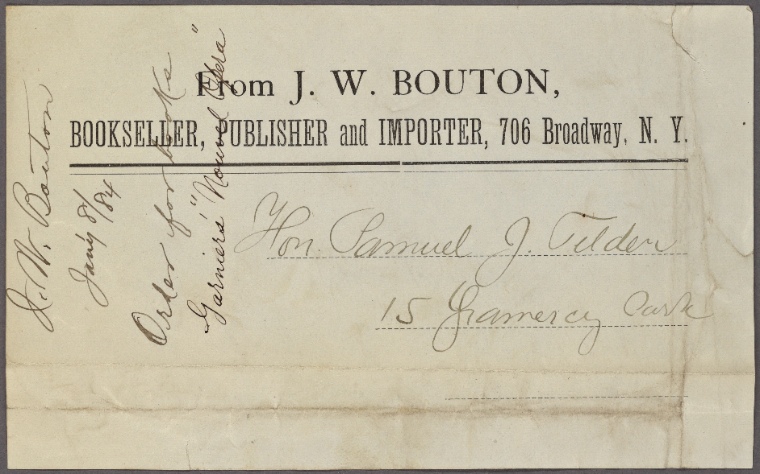 From J. W. BOUTON,
BOOKSELLER, PUBLISHER and IMPORTER, 706 Broadway, N. Y.
Hon. Samuel J. Tilden
15 Gramercy Park
J. W. Bouton
Jany 8/84
Order for books
Garniers' "Nouvel Opera"